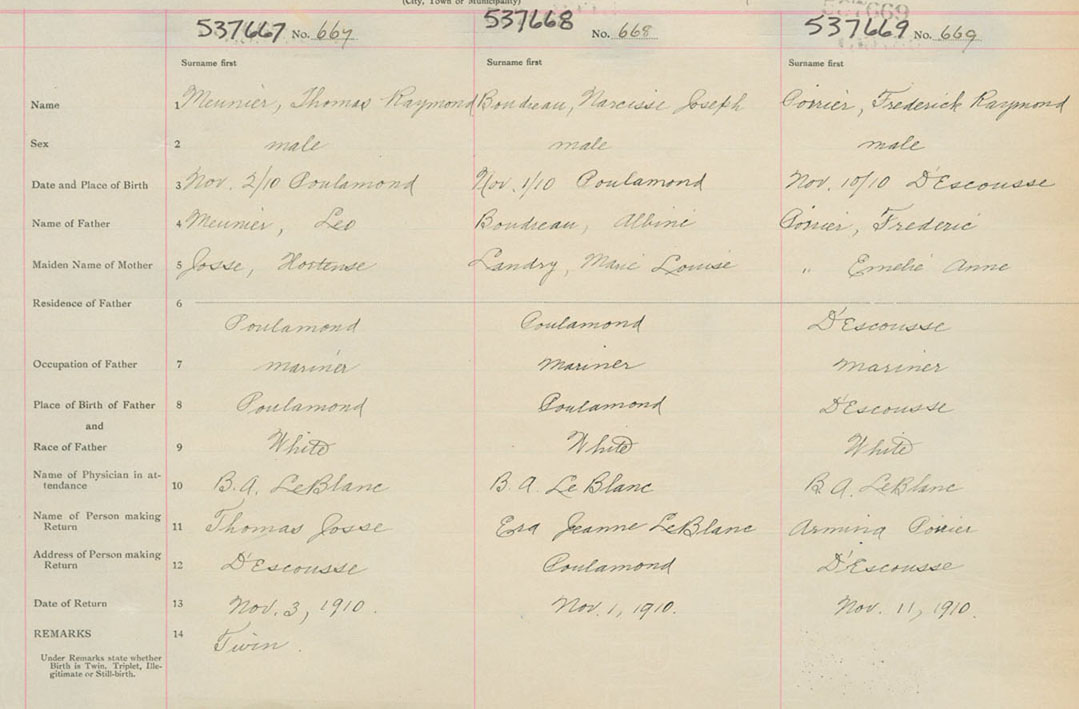 (City, Town or Municipality)
537667 No. 667 537668 No. 668 537669 No. 669
Surname first Surname first Surname first
Name 1 Meunier, Thomas Raymond Boudreau, Narcisse Joseph Poirier, Frederick Raymond
Sex 2 male male male
Date and Place of Birth 3 Nov. 2/10 Poulamond Nov. 1/10 Poulamond Nov. 10/10 D'Escousse
Name of Father 4 Meunier, Leo Boudreau, Albine Poirier, Frederic
Maiden Name of Mother 5 Josse, Hortense Landry, Marie Louise " Emelie Anne
Residence of Father 6
Poulamond Poulamond D'Escousse
Occupation of Father 7 mariner mariner mariner
Place of Birth of Father 8 Poulamond Poulamond D'Escousse
and
Race of Father 9 White White White
Name of Physician in at-
tendance 10 B.A. LeBlanc B A. Le Blanc B A. LeBlanc
Name of Person making
Return 11 Thomas Josse Jeanne LeBlanc Armina Poirier
Address of Person making
Return 12 D'Escousse Poulamond D'Escousse
Date of Return 13 Nov. 3, 1910. Nov. 1, 1910. Nov. 11, 1910.
REMARKS 14 Twin.
Under Remarks state whether
Birth is Twin, Triplet, Ille-
gitimate or Still-birth.